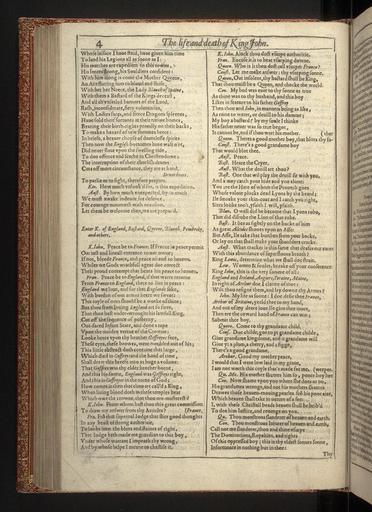 4 The life and death of King John.
Whose leisure I haue staid, haue giuen him time
To land his Legions all as soone as I:
His marches are expedient to this towne,
His forces strong, his Souldiers confident:
With him along is come the Mother Queene,
With her her Neece, the Lady Blanch of Spaine,
With them a Bastard of the Kings deceast,
And all th'vnsetled humors of the Land,
Rash, inconsiderate, fiery voluntaries,
With Ladies faces, and fierce Dragons spleenes,
Haue sold their fortunes at their natiue homes,
Bearing their birth-rights proudly on their backs,
To make a hazard of new fortunes heere:
In briefe, a brauer choyse of dauntlesse spirits
Then now the English bottomes haue waft o're,
Did neuer flote vpon the swelling tide,
To doe offence and scathe in Christendome:
The interruption of their churlish drums
Cuts off more circumstance, they are at hand,
To parlie or to fight, therefore prepare.
Kin. How much vnlook'd for, is this expedition.
Aust. By how much vnexpected, by so much
We must awake indeuor for defence,
For courage mounteth with occasion,
Let them be welcome then, we are prepar'd.
Enter K. of England, Bastard, Queene, Blanch, Pembroke,
and others.
K. Iohn. Peace be to France: If France in peace permit
Our iust and lineall entrance to our owne;
If not, bleede France, and peace ascend to heauen.
Whiles we Gods wrathfull agent doe correct
Their proud contempt that beats his peace to heauen.
Fran. Peace be to England, if that warre returne
From France to England, there to liue in peace:
England we loue, and for that Englands sake,
With burden of our armor heere we sweat:
This toyle of ours should be a worke of thine;
But thou from louing England art so farre,
That thou hast vnder-wrought his lawfull King,
Cut off the sequence of posterity,
Out-faced Infant State, and done a rape
Vpon the maiden vertue of the Crowne:
Looke heere vpon thy brother Geffreyes face,
These eyes, these browes, were moulded out of his;
This little abstract doth containe that large,
Which died in Geffrey: and the hand of time,
Shall draw this breefe into as huge a volume:
That Geffrey was thy elder brother borne,
And this his sonne, England was Geffreys right,
And this is Geffreyes in the name of God:
How comes it then that thou art call'd a King,
When liuing blood doth in these temples beat
Which owe the crowne, that thou ore-masterest?
K. Iohn. From whom hast thou this great commission France,
To draw my answer from thy Articles?
Fra. Frõ that supernal Iudge that stirs good thoughts
In any beast of strong authoritie,
To looke into the blots and staines of right,
That Iudge hath made me guardian to this boy,
Vnder whose warrant I impeach thy wrong,
And by whose helpe I meane to chastise it.
K. Iohn. Alack thou dost vsurpe authoritie.
Fran. Excuse it is to beat vsurping downe.
Queen. Who is it thou dost call vsurper France?
Const. Let me make answer: thy vsurping sonne.
Queen. Out insolent, thy bastard shall be King,
That thou maist be a Queen, and checke the world.
Con. My bed was euer to thy sonne as true
As thine was to thy husband, and this boy
Liker in feature to his father Geffrey
Then thou and Iohn, in manners being as like,
As raine to water, or deuill to his damme;
My boy a bastard? by my soule I thinke
His father neuer was so true begot,
It cannot be, and if thou wert his mother.
Queen. Theres a good mother boy, that blots thy father
Const. There's a good grandame boy
That would blot thee.
Aust. Peace.
Bast. Heare the Cryer.
Aust. What the deuill art thou?
Bast. One that wil play the deuill sir with you,
And a may catch your hide and you alone:
You are the Hare of whom the Prouerb goes
Whose valour plucks dead Lyons by the beard;
Ile smoake your skin-coat and I catch you right,
Sirra looke too't, yfaith I will, yfaith.
Blan. O well did he become that Lyons robe,
That did disrobe the Lion of that robe.
Bast. It lies as sightly on the backe of him
As great Alcides shooes vpon an Asse:
But Asse, Ile take that burthen from your backe,
Or lay on that shall make your shoulders cracke.
Aust. What cracker is this same that deafes our eares
With this abundance of superfluous breath?
King Lewis, determine what we shall doe strait.
Lew. Women & fooles, breake off your conference.
King Iohn, this is the very summe of all:
England and Ireland, Angiers, Toraine, Maine,
In right of Arthur doe I claime of thee:
Wilt thou resigne them, and lay downe thy Armes?
Iohn. My life as soone: I doe defie thee France,
Arthur of Britaine, yeeld thee to my hand,
And out of my deere loue Ile giue thee more,
Then ere the coward hand of France can win;
Submit thee boy.
Queen. Come to thy grandame child.
Cons. Doe childe, goe to yt grandame childe,
Giue grandame kingdome, and it grandame will
Giue yt a plum, a cherry, and a figge,
There's a good grandame.
Arthur. Good my mother peace,
I would that I were low laid in my graue,
I am not worth this coyle that's made for me.
Qu. Mo. His mother shames him so, poore boy hee weepes.
Con. Now shame vpon you where she does or no,
His grandames wrongs, and not his mothers shames
Drawes those heauen-mouing pearles frõ his poor eies,
Which heauen shall take in nature of a fee:
I, with these Christall beads heauen shall be brib'd
To doe him Iustice, and reuenge on you.
Qu. Thou monstrous slanderer of heauen and earth.
Con. Thou monstrous Iniurer of heauen and earth,
Call not me slanderer, thou and thine vsurpe
The Dominations, Royalties, and rights
Of this oppressed boy; this is thy eldest sonnes sonne,
Infortunate in nothing but in thee:
Thy